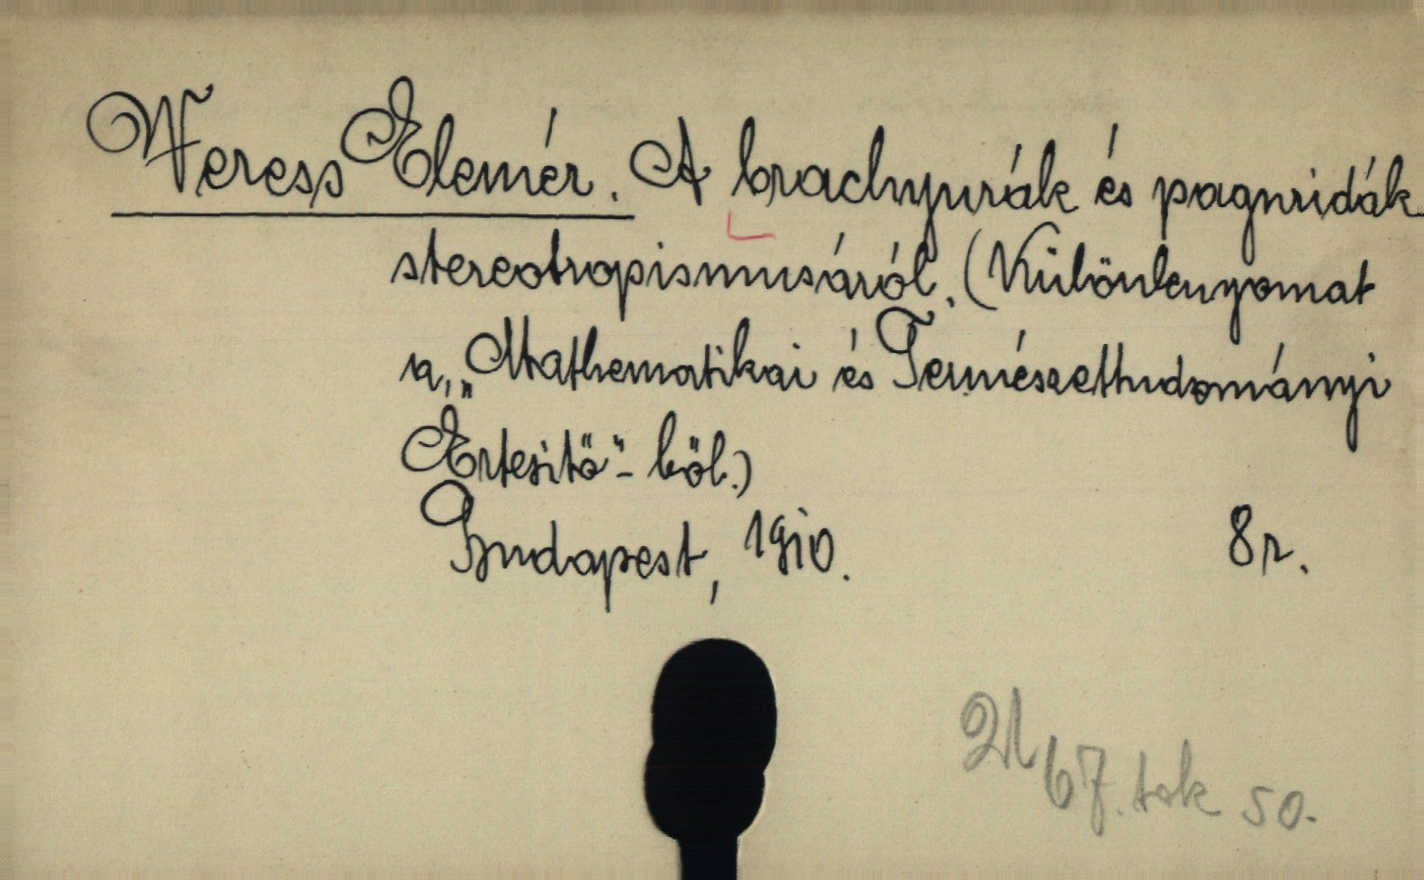 Veress Elemér. A brachyurák és paguridák
stereotropismusáról. (Különlenyomat
a „Mathematikai és Természettudományi
Értesitö"-böl.)
Budapest, 1910. 8r.
21 67. tok 50.